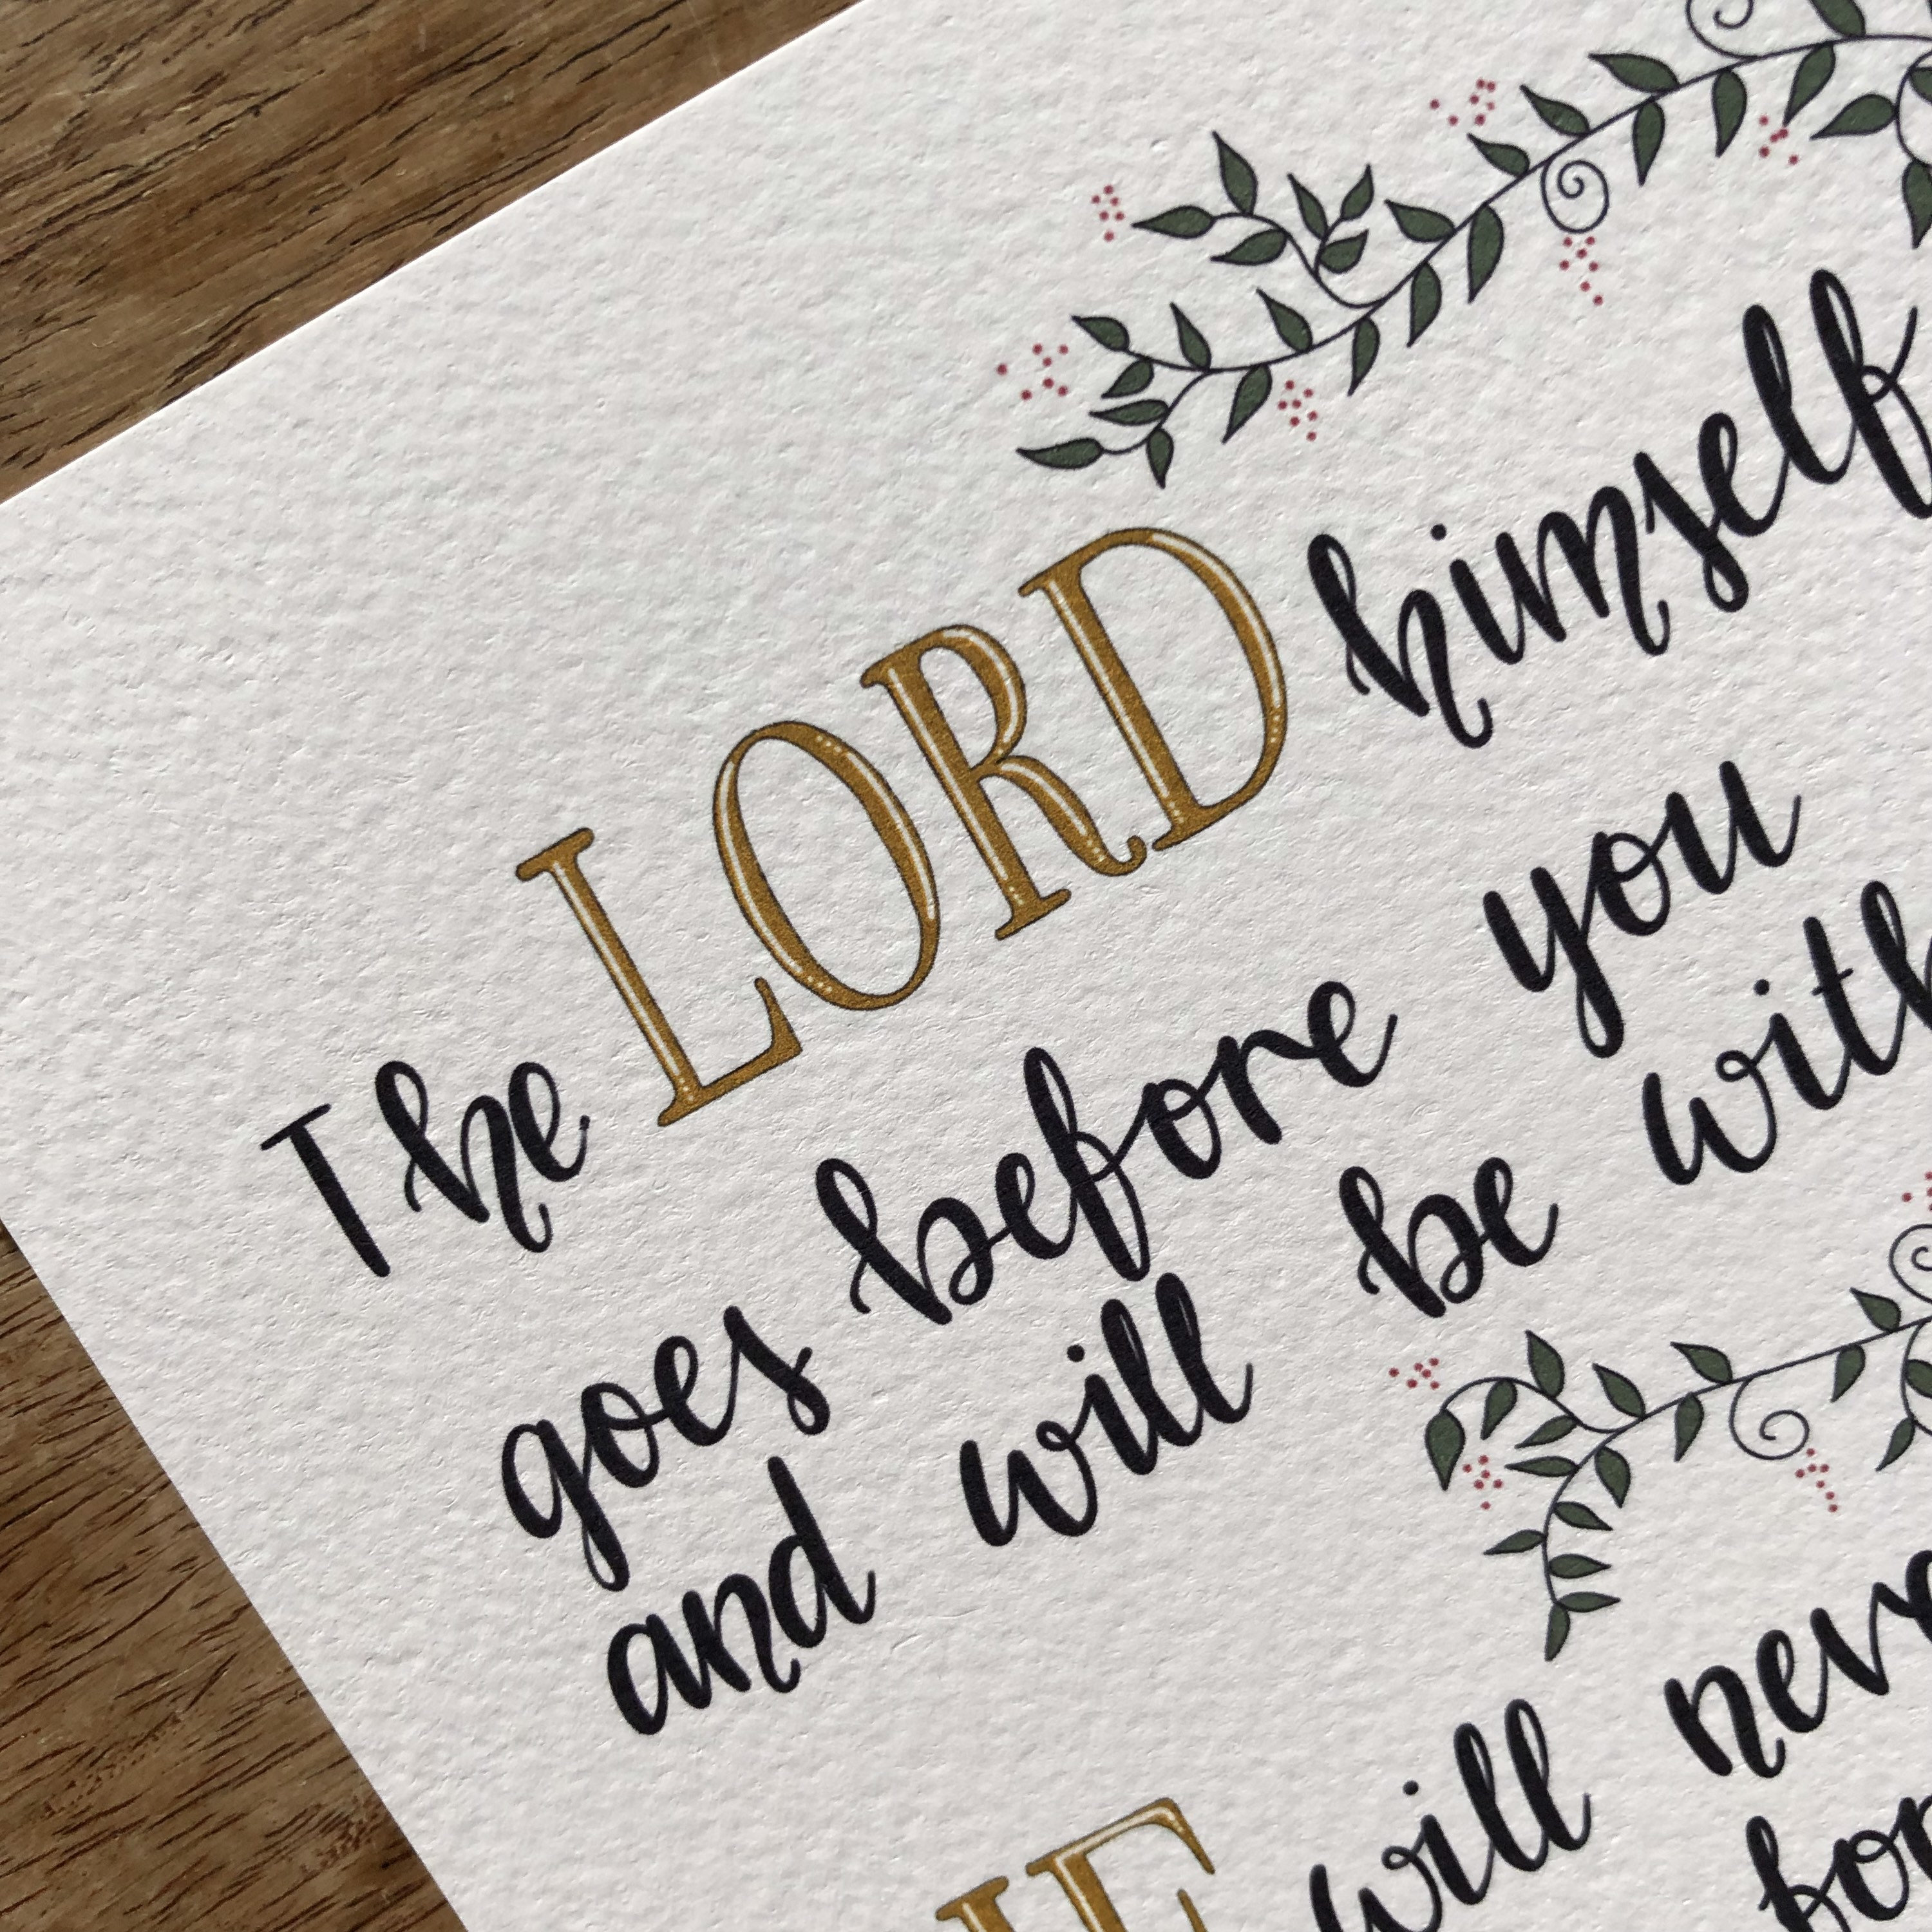 The LORD himself
goes before you
and will be with
will